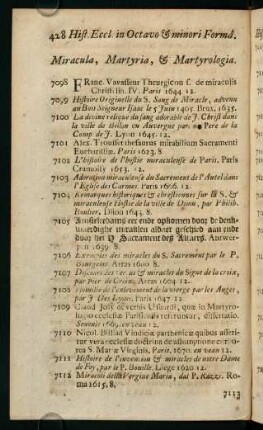 428 Hist. Eccl. in Octavo & minori Formâ.
Miracula, Martyria, & Martyrologia.
7098 FRanc. Vavasseur Theurgicon s. de miraculis
Christi lib. IV. Paris 1644 12.
7099 Histoire Originelle du S. Sang de Miracle, advenu
au Bois Seigneur Isaac le 5 Juin 1405. Brux. 1635.
7100 La divine relique du sang adorable de J. Christ dans
la ville de Billon en Auvergne par un Pere de la
Comp. de J. Lyon 1645. 12.
7101 Alex. Trousset thesaurus mirabilium Sacramenti
Eucharistiae. Paris 1623. 8.
7102 L'histoire de l'hostie miraculeuse de Paris. Paris
Cramoisy 1653. 12.
7103 Adoration miraculeuse du Sacrement de l'Autel dans
l'Eglise des Carmes. Paris 1666. 12.
7104 Remarques historiques & chrestiennes sur la S. &
miraculeuse Hostie de la ville de Dijon, par Philib.
Boulier, Dijon 1643. 8.
7105 Amsterdams eer ende opkomen door de denk-
waerdighe miraklen aldaer geschied aen ende
door het H. Sacrament des Altaers. Antwer-
pen 1639. 8.
7106 Exemples des miracles du S. Sacrement par le P.
Bourgeois. Arras 1600. 8.
7107 Discours des miracles du Signe de la croix,
par Pier. de Croix, Arras 1604. 12.
7108 Histoire de l'enlevement de la vierge par les Anges,
par J. Des Loyon. Paris 1647. 12.
7109 Caud. Joly de verbis Usuardi, quae in Martyro-
logio ecclesiae Parisiensis referuntur, dissertatio.
Senonis 1669. en veau 12.
7110 Nicol. Billiad Vindiciae parthenicae quibus asseri-
tur vera ecclesiae doctrina de assumptione corporea
S. Mariae Virginis, Paris, 1670. en veau 12.
7111 Histoire de l'invention & miracles de nôtre Dame
de Foy, par le P. Bouille. Liege 1620 12.
7112 Miracoli della Vergine Maria, dal P. Rma 1615. 8.
7113